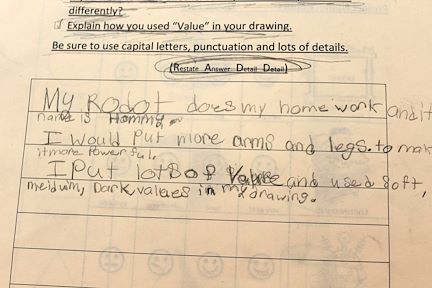 differently?
Explain how you used "Value" in your drawing.
Be sure to use capital letters, punctuation and lots of details.
(Restate Answer Detail Detail)
My Rodot does my home work and it
name is Hommy
I would Put more arms and legs. to mak
it more Powerful.
I Put lots of and used soft,
meidum, Dark values in my drawing.